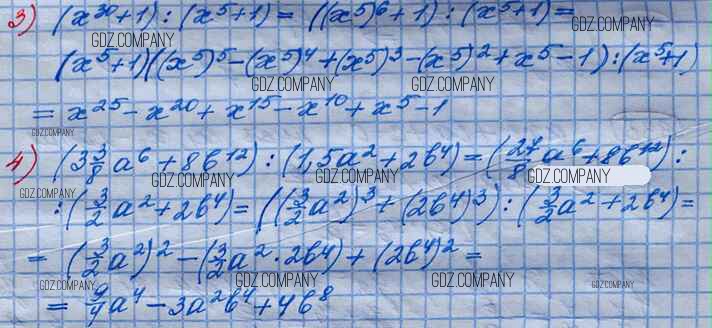 3) (x³⁰+1) : (x⁵+1) = ((x⁵)⁶+1) : (x⁵+1) =
GDZ.COMPANY GDZ.COMPANY
(x⁵+1)((x⁵)⁵-(x⁵)⁴+(x⁵)³-(x⁵)²+x⁵-1) : (x⁵+1)
GDZ.COMPANY GDZ.COMPANY
= x²⁵-x²⁰+x¹⁵-x¹⁰+x⁵-1
GDZ.COMPANY
4) (3 3/8 a⁶+8b¹²) : (1,5a²+2b⁴) = (27/8 a⁶+8b¹²) :
GDZ.COMPANY GDZ.COMPANY GDZ.COMPANY
: (3/2 a²+2b⁴) = ((3/2 a²)³+(2b⁴)³) : (3/2 a²+2b⁴) =
GDZ.COMPANY GDZ.COMPANY GDZ.COMPANY
= (3/2 a²)²-(3/2 a²·2b⁴)+(2b⁴)² =
GDZ.COMPANY GDZ.COMPANY GDZ.COMPANY GDZ.COMPANY
= 9/4 a⁴-3a²b⁴+4b⁸